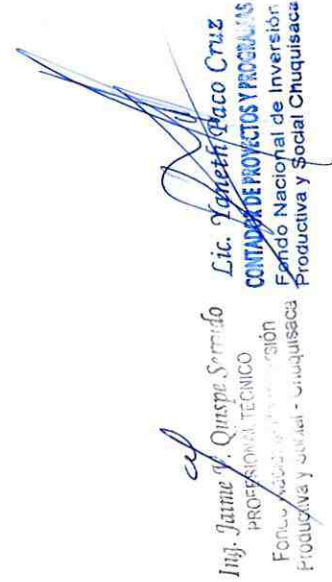 Ing. Jaime V. Quispe
PROFESIONAL TECNICO
Productiva y Social - Chuquisaca
Lic. Yaneth Paco Cruz
CONTADOR DE PROYECTOS Y PROGRAMAS
Fondo Nacional de Inversión
Productiva y Social Chuquisaca